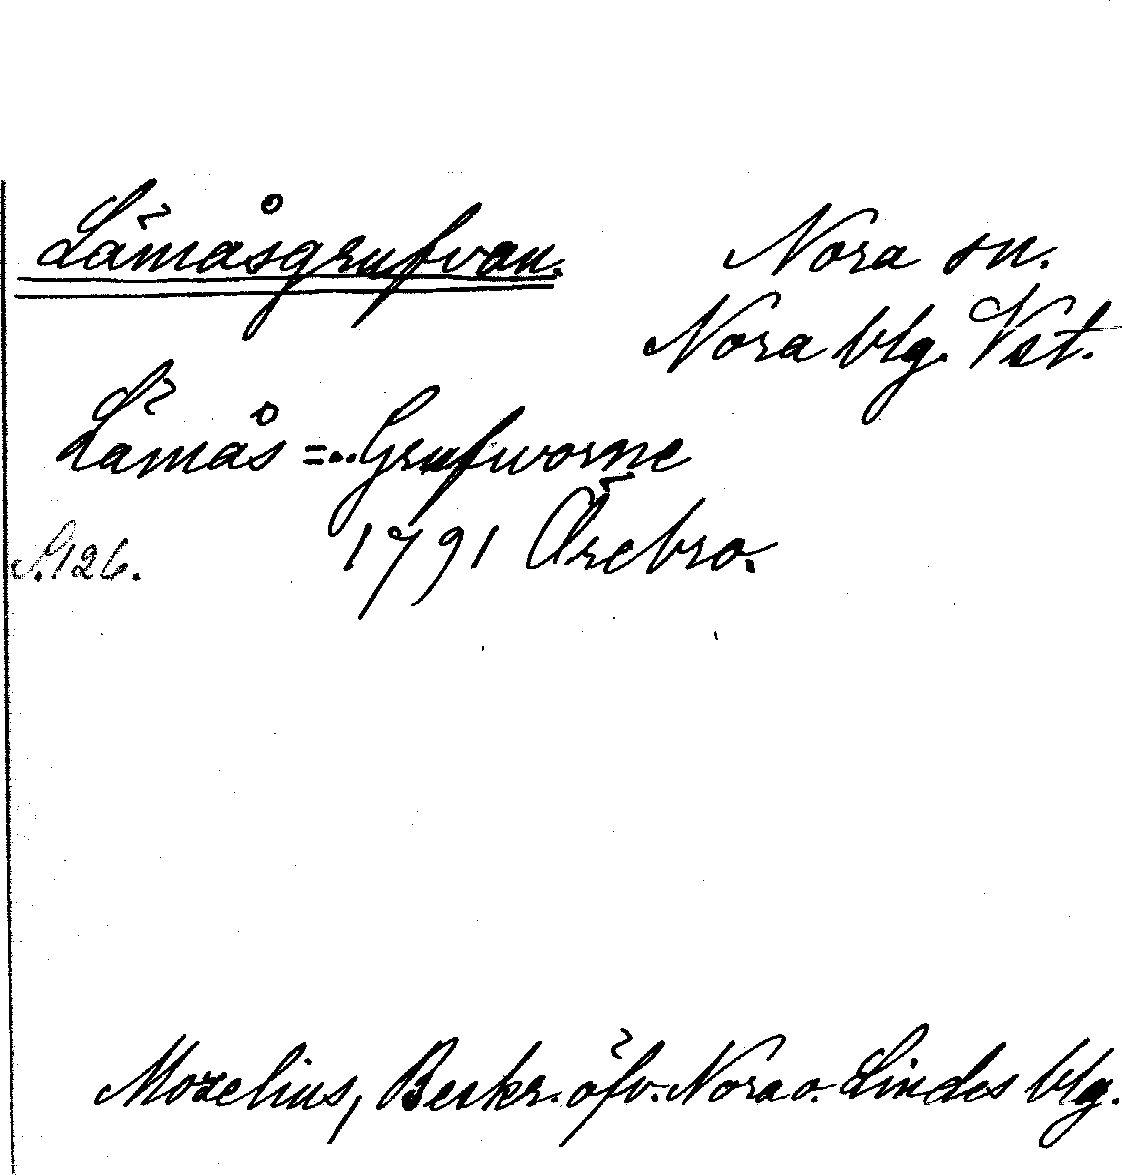 Lämåsgrufvan.
Nora sn.
Nora blg. Vst.
Lämås =..Grufworne
S.126.
1791 Örebro.
Mozelius, Beskr. öfv. Nora o. Lindes blg.